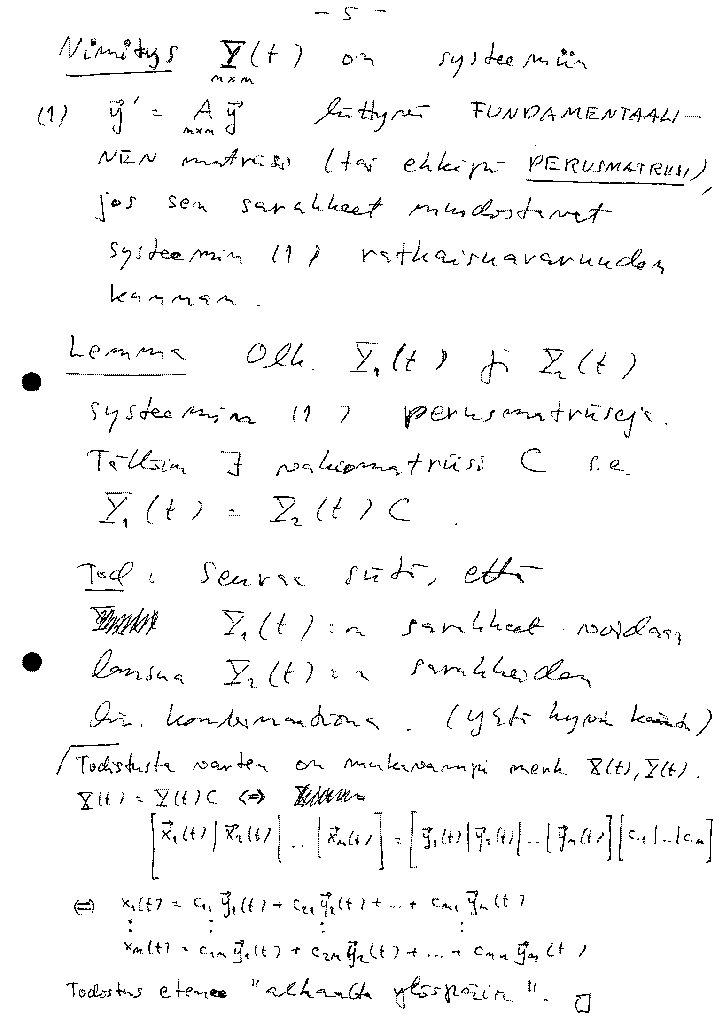 - 5 -
Nimitys Y(t) on systeemiin
n×n
(1) y⃗' = A y⃗ liittyvä FUNDAMENTAALI-
n×n
NEN matriisi (tai ehkäpä PERUSMATRIISI),
jos sen sarakkeet muodostavat
systeemin (1) ratkaisuavaruuden
kannan.
Lemma Olk. Y₁(t) ja Y₂(t)
systeemin (1) perusmatriiseja.
Tällöin ∃ vakiomatriisi C s.e.
Y₁(t) = Y₂(t) C.
Tod: Seuraa siitä, että
Y₁(t):n sarakkeet voidaan
lausua Y₂(t):n sarakkeiden
lin. kombinaationa. (yhtä hyvin)
Todistusta varten on mukavampi merk. X(t), Y(t).
X(t) = Y(t)C ⇔
[x⃗₁(t)|x⃗₂(t)|...|x⃗ₙ(t)] = [y⃗₁(t)|y⃗₂(t)|...|y⃗ₙ(t)][c₁|...|cₙ]
⇔ x₁(t) = c₁₁ y⃗₁(t) + c₂₁ y⃗₂(t) + ... + cₙ₁ y⃗ₙ(t)
⋮ ⋮ ⋮ ⋮
xₙ(t) = c₁ₙ y⃗₁(t) + c₂ₙ y⃗₂(t) + ... + cₙₙ y⃗ₙ(t)
Todistus etenee "alhaalta ylöspäin". □